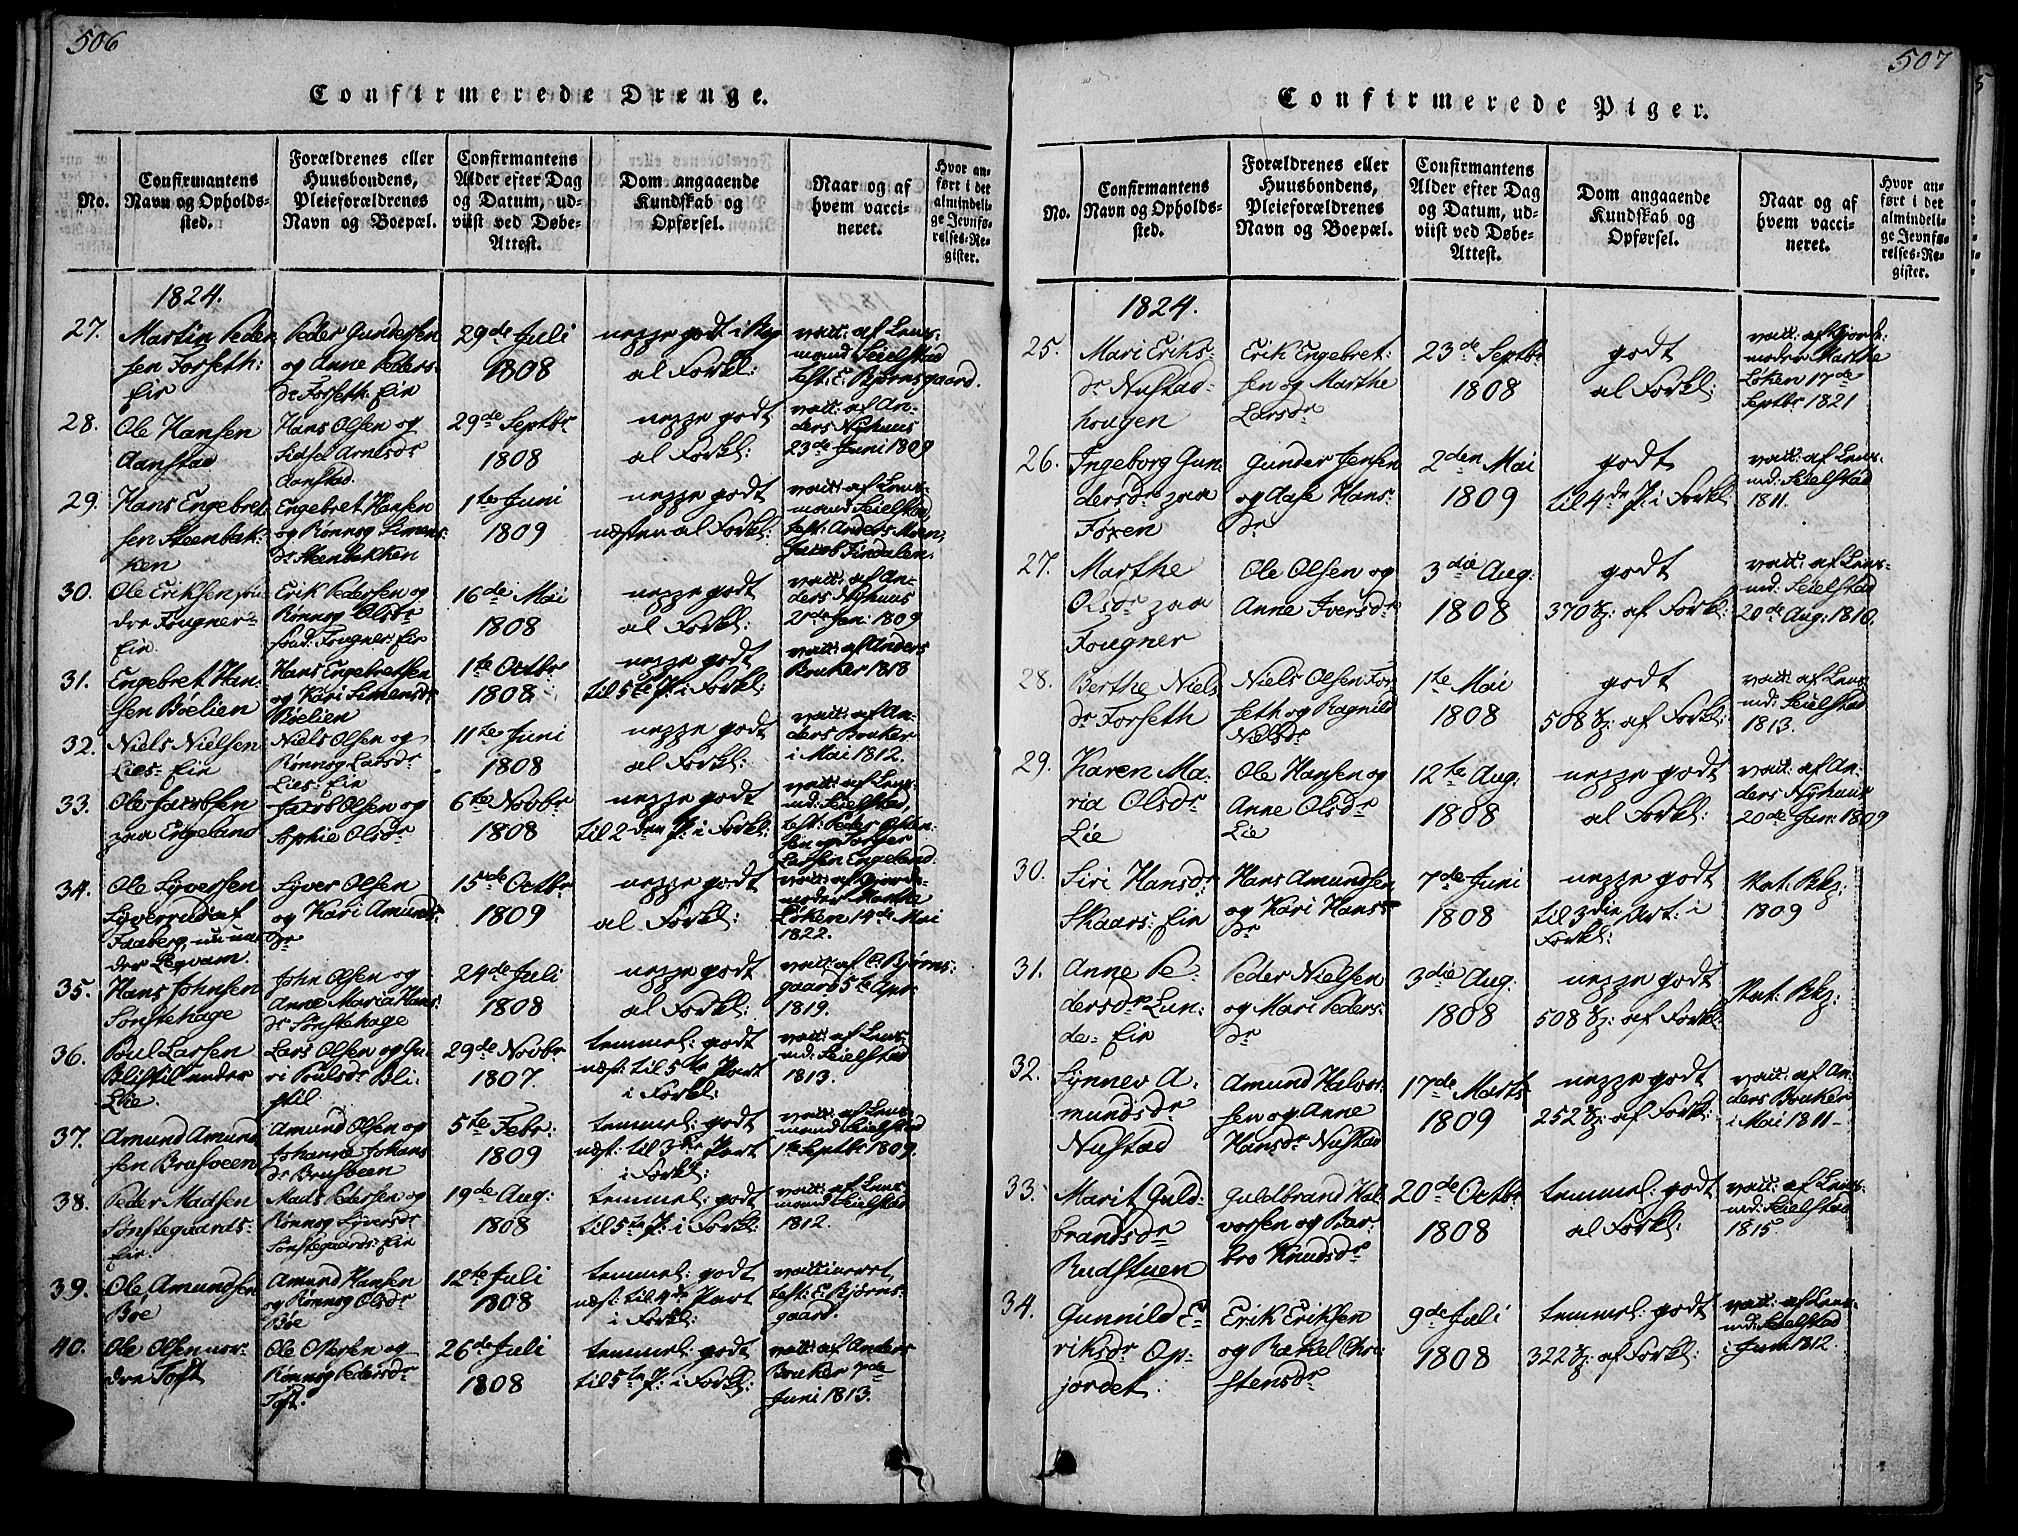 506
Confirmerede Drenge.
No.
Confirmantens
Navn og Opholds-
sted.
Forældrenes eller
Huusbondens,
Pleieforældrenes
Navn og Boepæl.
Confirmantens
Alder efter Dag
og Datum, ud-
viist ved Døbe-
Attest.
Dom angaaende
Kundskab og
Opførsel.
Naar og af
hvem vacci-
neret.
Hvor an-
ført i det
almindeli-
ge Jevnfø-
relses-Re-
gister.
1824.
27.
Martin Peder
sen Forseth:
Eir
Peder Gundersen
og Anne Peders:
dr Forseth: Eir
29de Juli
1808
al Forkl:
vacc: af Lens-
mand Seielstad
test: E. Bjørnsgaard.
28.
Ole Hansen
Aanstad
Hans Olsen og
Sidsel Arnesdr
Aanstad.
29de Septbr
1808
godt
al Forkl:
vacc: af An-
ders Nyhuus
23de Juni 1809
29.
Hans Engebret
sen Steenbak:
ken
Engebret Hansen
og Rønnog Simens
dr Steenbakken
1te Juni
1809
godt
næsten al Forkl:
vacc: af Lens-
mand Seielstad
test: Anders Moen,
Jacob Findalen.
30.
Ole Eriksen søn
dre Fougner-
Eir.
Erik Pedersen og
Rønnog Olsdr
sønd: Fougner: Eir
16de Mai
1808
godt
al Forkl:
vacc: af An-
ders Nyhuus
2de Jan: 1809
31.
Engebret Han-
sen Bøelien
Hans Engebretsen
og Kari Simensdr
Bøelien
1te Octbr
1808
godt
til 5te P: i Forkl:
vacc: af Anders
Bruker 1818
32.
Niels Nielsen
Lies: Eir
Niels Olsen og
Rønnog Larsdr
Lies: Eir
11te Juni
1808
godt
al Forkl:
vacc: af An-
ders Bruker
i Mai 1812.
33.
Ole Jacobsen
paa Engeland
Jacob Olsen og
Sophie Olsdr
6te Novbr
1808
godt
til 2den P: i Forkl:
vacc: af Lens
md: Seielstad,
test: Peder
sen og Torger
Larsen Engeland.
34.
Ole Syversen
Syverrud af
Faaberg, nu un-
der Legvam.
Syver Olsen
og Kari Amunds
dr
15de Octbr
1809
godt
al Forkl:
vacc: af Gjorde-
moder Marthe
Løken 19de Mai
1822.
35.
Hans Johnsen
Sønstehage
John Olsen og
Anne Maria Hans:
dr Sønstehage
24de Juli
1808
godt
al Forkl:
vacc: af E. Bjørns:
gaard 5te Apr:
1819.
36.
Poul Larsen
Blistil under
Lie.
Lars Olsen og Gu-
ri Poulsdr Bli-
stil
29de Novbr
1807.
temmel: godt
næst: til 5te Part
i Forkl:
vacc: af Lens-
md: Seielstad
1813.
37.
Amund Amund
sen Brusveen
Amund Olsen og
Johanne Johans
dr Brusveen
5te Febr:
1809
temmel: godt
næst: til 3die Part
i Forkl:
vacc: af Lens-
mand Seielstad
1te Septbr 1809.
38.
Peder Madsen
Sønstegaards-
Eir.
Mads Pedersen og
Rønnog Syversdr
Sønstegaards: Eir
19de Aug:
1808
temmel: godt
til 5te P: i Forkl:
vacc: af Lens
mand Seielstad
1812.
39.
Ole Amundsen
Bøe
Amund Hansen
og Rønnog Olsdr
Bøe
12te Juli
1808
temmel: godt
næst: til 4de Part
i Forkl:
vaccineret,
test: E. Bjørns-
gaard.
40.
Ole Olsen nor-
dre Toft
Ole Olsen og
Rønnog Pedersdr
Toft.
26de Juli
1808
temmel: godt
til 5te P: i Forkl:
vacc: af Anders
Bruker 7de
Juni 1813.
507
Confirmerede Piger.
No.
Confirmantens
Navn og Opholds-
sted.
Forældrenes eller
Huusbondens,
Pleieforældrenes
Navn og Boepæl.
Confirmantens
Alder efter Dag
og Datum, ud-
viist ved Døbe-
Attest.
Dom angaaende
Kundskab og
Opførsel.
Naar og af
hvem vacci-
neret.
Hvor an-
ført i det
almindeli-
ge Jevnfø-
relses-Re-
gister.
1824.
25.
Mari Eriks-
dr Nustad-
hougen
Erik Engebret:
sen og Marthe
Larsdr
23de Septbr
1808
godt
al Forkl:
vacc: af Gjorde-
moder Marthe
Løken 17de
Septbr 1821
26.
Ingeborg Gun-
dersdr paa
Foxen
Gunder Jensen
og Aase Hans-
dr
2den Mai
1809
godt
til 4de P: i Forkl:
vacc: af Lens-
md: Seielstad
1811.
27.
Marthe
Olsdr paa
Fougner
Ole Olsen og
Anne Iversdr
3die Aug:
1808
godt
370 Sp: af Forkl:
vacc: af Lens-
md: Seielstad
20de Aug: 1810.
28.
Berthe Niels
dr Forseth
Niels Olsen For
seth og Ragnild
Nielsdr
1te Mai
1808
godt
508 Sp: af Forkl:
vacc: af Lens-
md: Seielstad
1813.
29.
Karen Ma-
ria Olsdr
Lie
Ole Hansen og
Anne Olsdr
Lie
12te Aug:
1808
godt
al Forkl:
vacc: af An-
ders Nyhuus
20de Jan: 1809
30.
Siri Hansdr
Skaars: Eir
Hans Amundsen
og Kari Hans
dr
7de Juni
1808
godt
til 3die Art: i
Forkl:
1809
31.
Anne Pe-
dersdr Lun-
de- Eir
Peder Nielsen
og Mari Peders-
dr
3die Aug:
1808
godt
508 Sp: af Forkl:
32.
Synnev A-
mundsdr
Nustad
Amund Halvor
sen og Anne
Hansdr Nustad
17de Marts
1809
godt
252 Sp: af Forkl:
vacc: af An-
ders Bruker
i Mai 1811-
33.
Marit Guld-
brandsdr
Rudstuen
Guldbrand Hal
vorsen og Bar-
bro Knudsdr
20de Octbr
1808
temmel: godt
al Forkl:
vacc: af Lens-
md: Seielstad
1815
34.
Gunnild E-
riksdr Op-
jordet
Erik Eriksen
og Rakel Chri-
stensdr
9de Juli
1808
temmel: godt
322 Sp: af Forkl:
vacc: af Lens-
md: Seielstad
i Juni 1812.